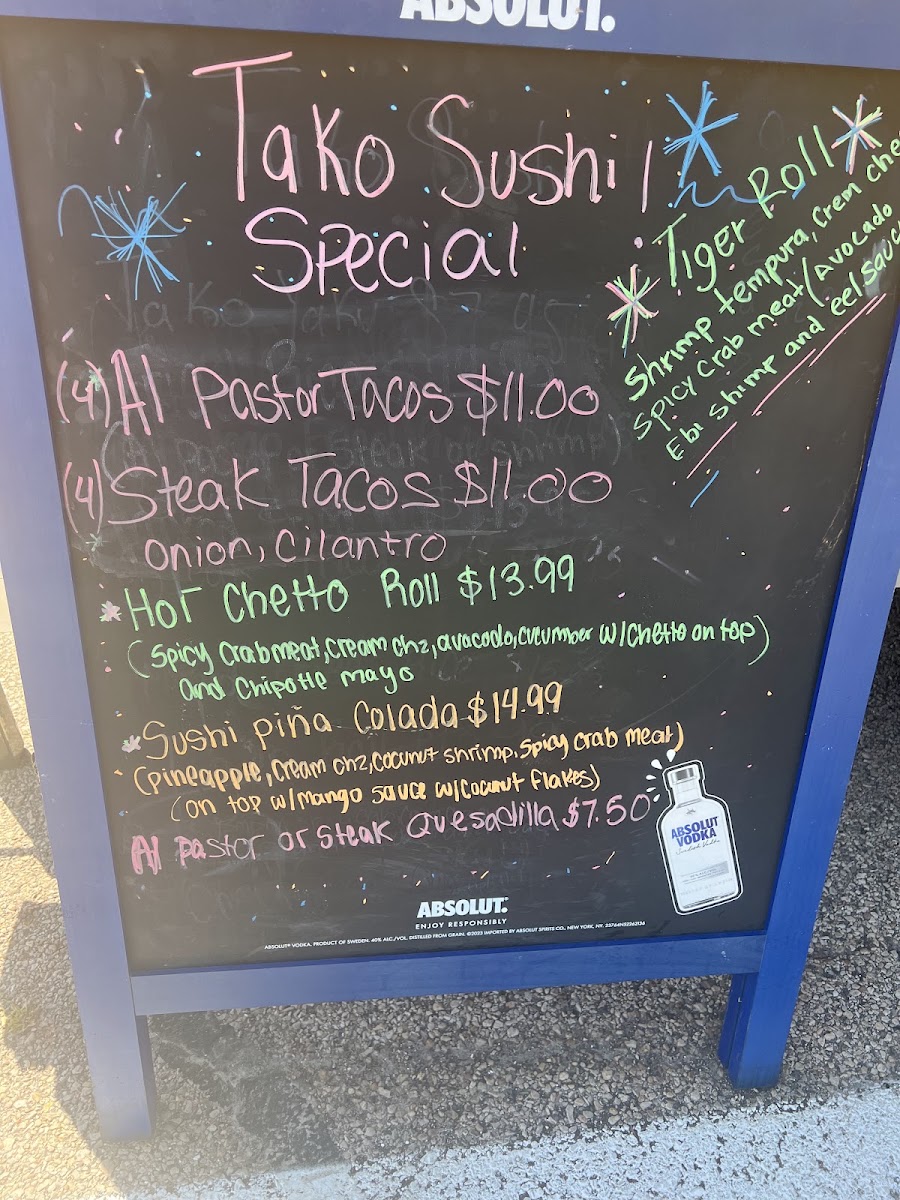 ABSOLUT.
Tako Sushi
Special
Tiger Roll
Shrimp tempura, Crem che
Spicy Crab meat (Avocado
Ebi shimp and eel sauc
(4) Al Pastor Tacos $11.00
(4) Steak Tacos $11.00
onion, cilantro
* Hot Chetto Roll $13.99
(Spicy crabmeat, cream chz, avacodo, cucumber w/chetto on top)
and chipotle mayo
* Sushi piña Colada $14.99
(pineapple, cream chz, cocunut shrimp, spicy crab meat)
(on top w/mango sauce w/cocunut flakes)
Al pastor or steak quesadilla $7.50
ABSOLUT
VODKA
Swedish Vodka
ABSOLUT.
ENJOY RESPONSIBLY
ABSOLUT® VODKA. PRODUCT OF SWEDEN. 40% ALC./VOL. DISTILLED FROM GRAIN. ©2023 IMPORTED BY ABSOLUT SPIRITS CO., NEW YORK, NY.